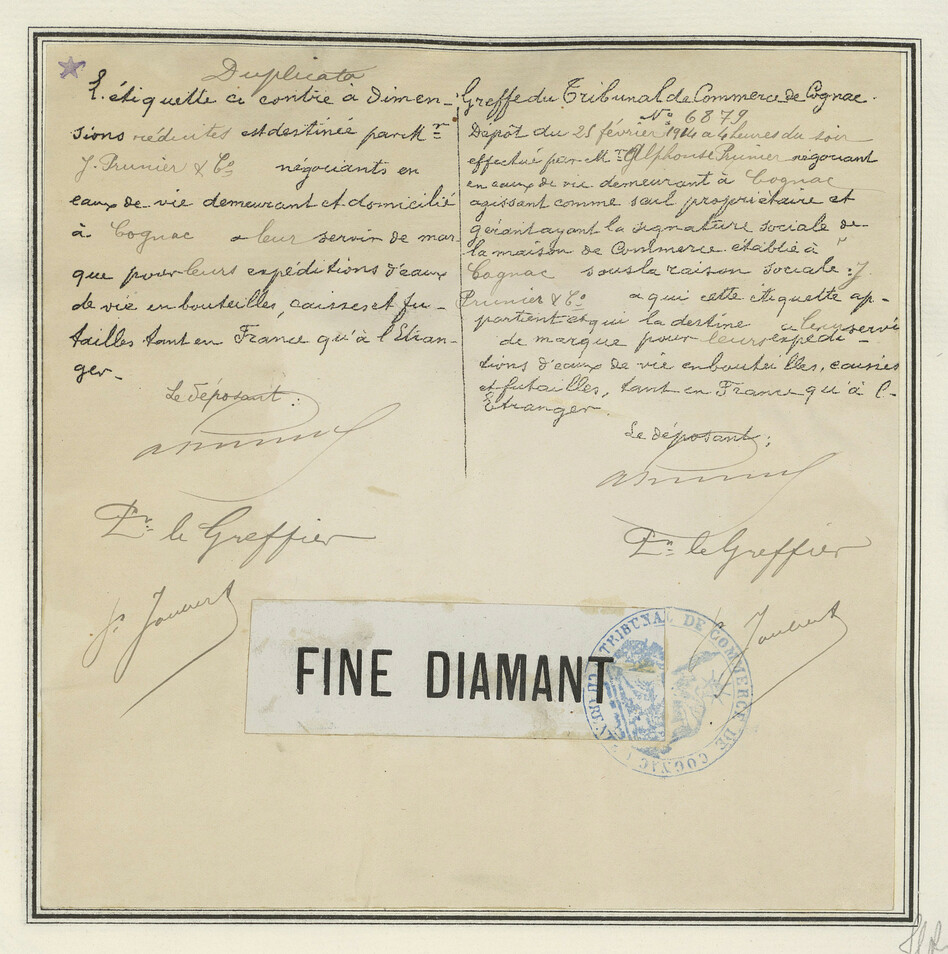 Duplicata
L'étiquette ci contre à dimen-
sions réduites est destinée par Mr
J. Prunier & Co négociants en
eaux de vie demeurant et domicilié
à Cognac a leur servir de mar-
que pour leurs expéditions d'eaux
de vie en bouteilles, caisses et fu-
tailles tant en France qu'à l'Etran-
ger.
Le déposant :
Pr le Greffier
Greffe du Tribunal de Commerce de Cognac.
No 6879
Dépôt du 25 février 1914 a 4 heures du soir
effectué par Mr Alphonse Prunier négociant
en eaux de vie demeurant à Cognac
agissant comme seul propriétaire et
gérant ayant la signature sociale de
la maison de Commerce établie à
Cognac sous la raison sociale : J.
Prunier & Co a qui cette étiquette ap-
partient et qui la destine a leur servir
de marque pour leurs expédi-
tions d'eaux de vie en bouteilles, caisses
et futailles, tant en France qu'à l'
Etranger.
Le déposant :
Pr le Greffier
FINE DIAMANT
TRIBUNAL DE COMMERCE DE COGNAC